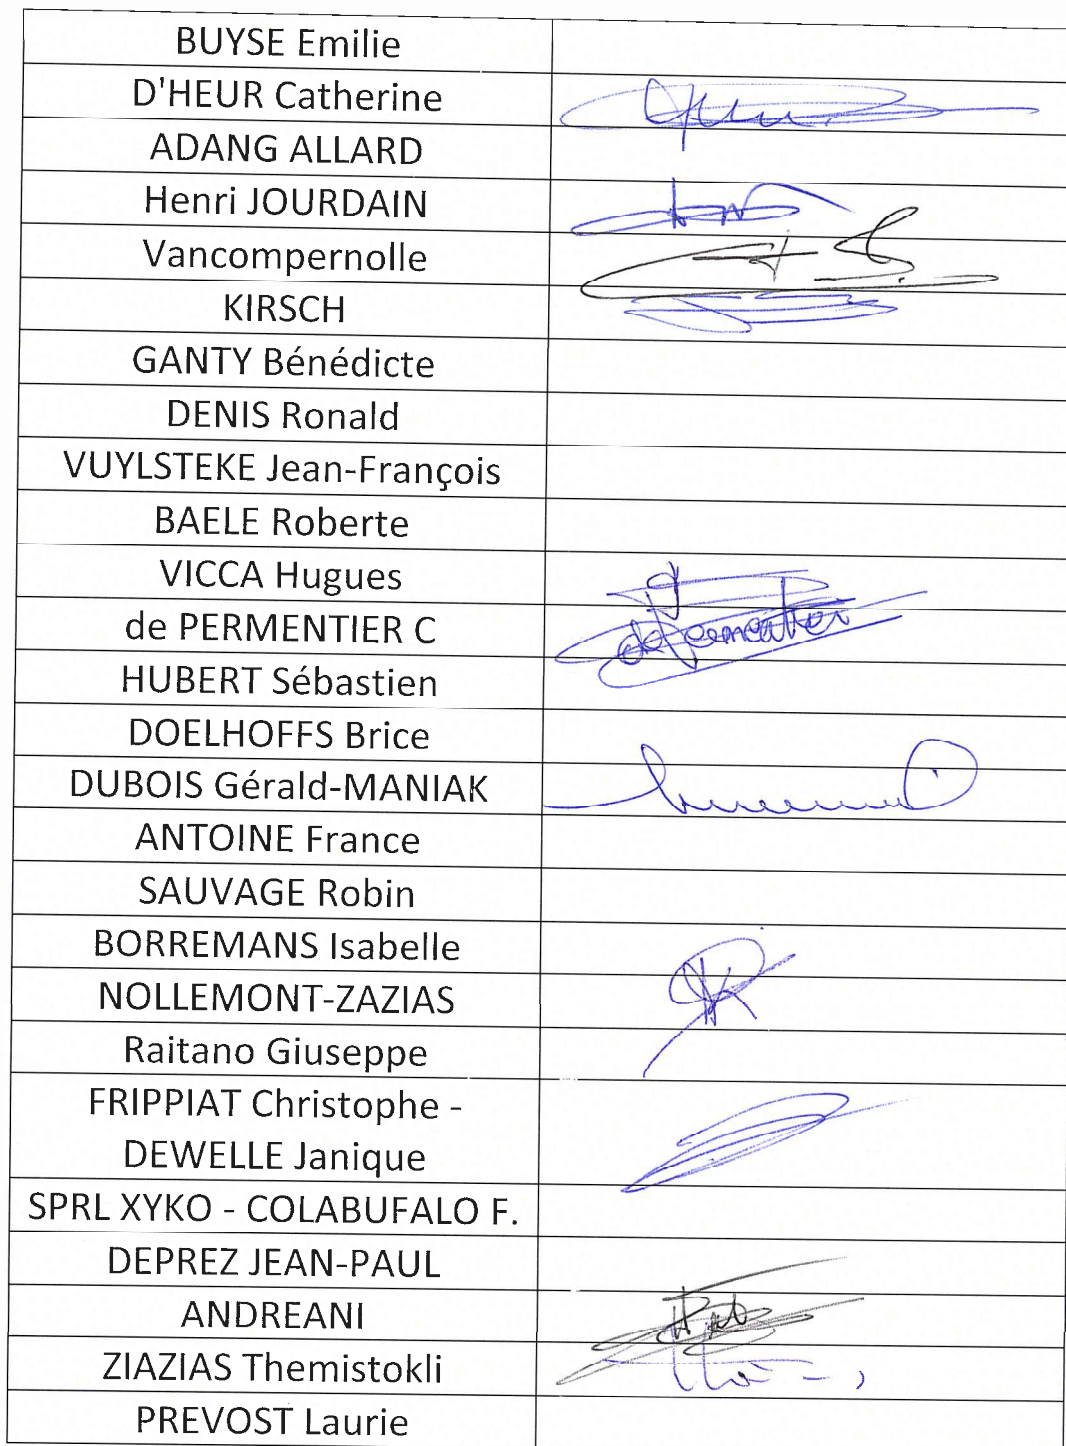 BUYSE Emilie
D'HEUR Catherine
ADANG ALLARD
Henri JOURDAIN
Vancompernolle
KIRSCH
GANTY Bénédicte
DENIS Ronald
VUYLSTEKE Jean-François
BAELE Roberte
VICCA Hugues
de PERMENTIER C
de Permentier
HUBERT Sébastien
DOELHOFFS Brice
DUBOIS Gérald-MANIAK
ANTOINE France
SAUVAGE Robin
BORREMANS Isabelle
NOLLEMONT-ZAZIAS
Raitano Giuseppe
FRIPPIAT Christophe -
DEWELLE Janique
SPRL XYKO - COLABUFALO F.
DEPREZ JEAN-PAUL
ANDREANI
ZIAZIAS Themistokli
PREVOST Laurie